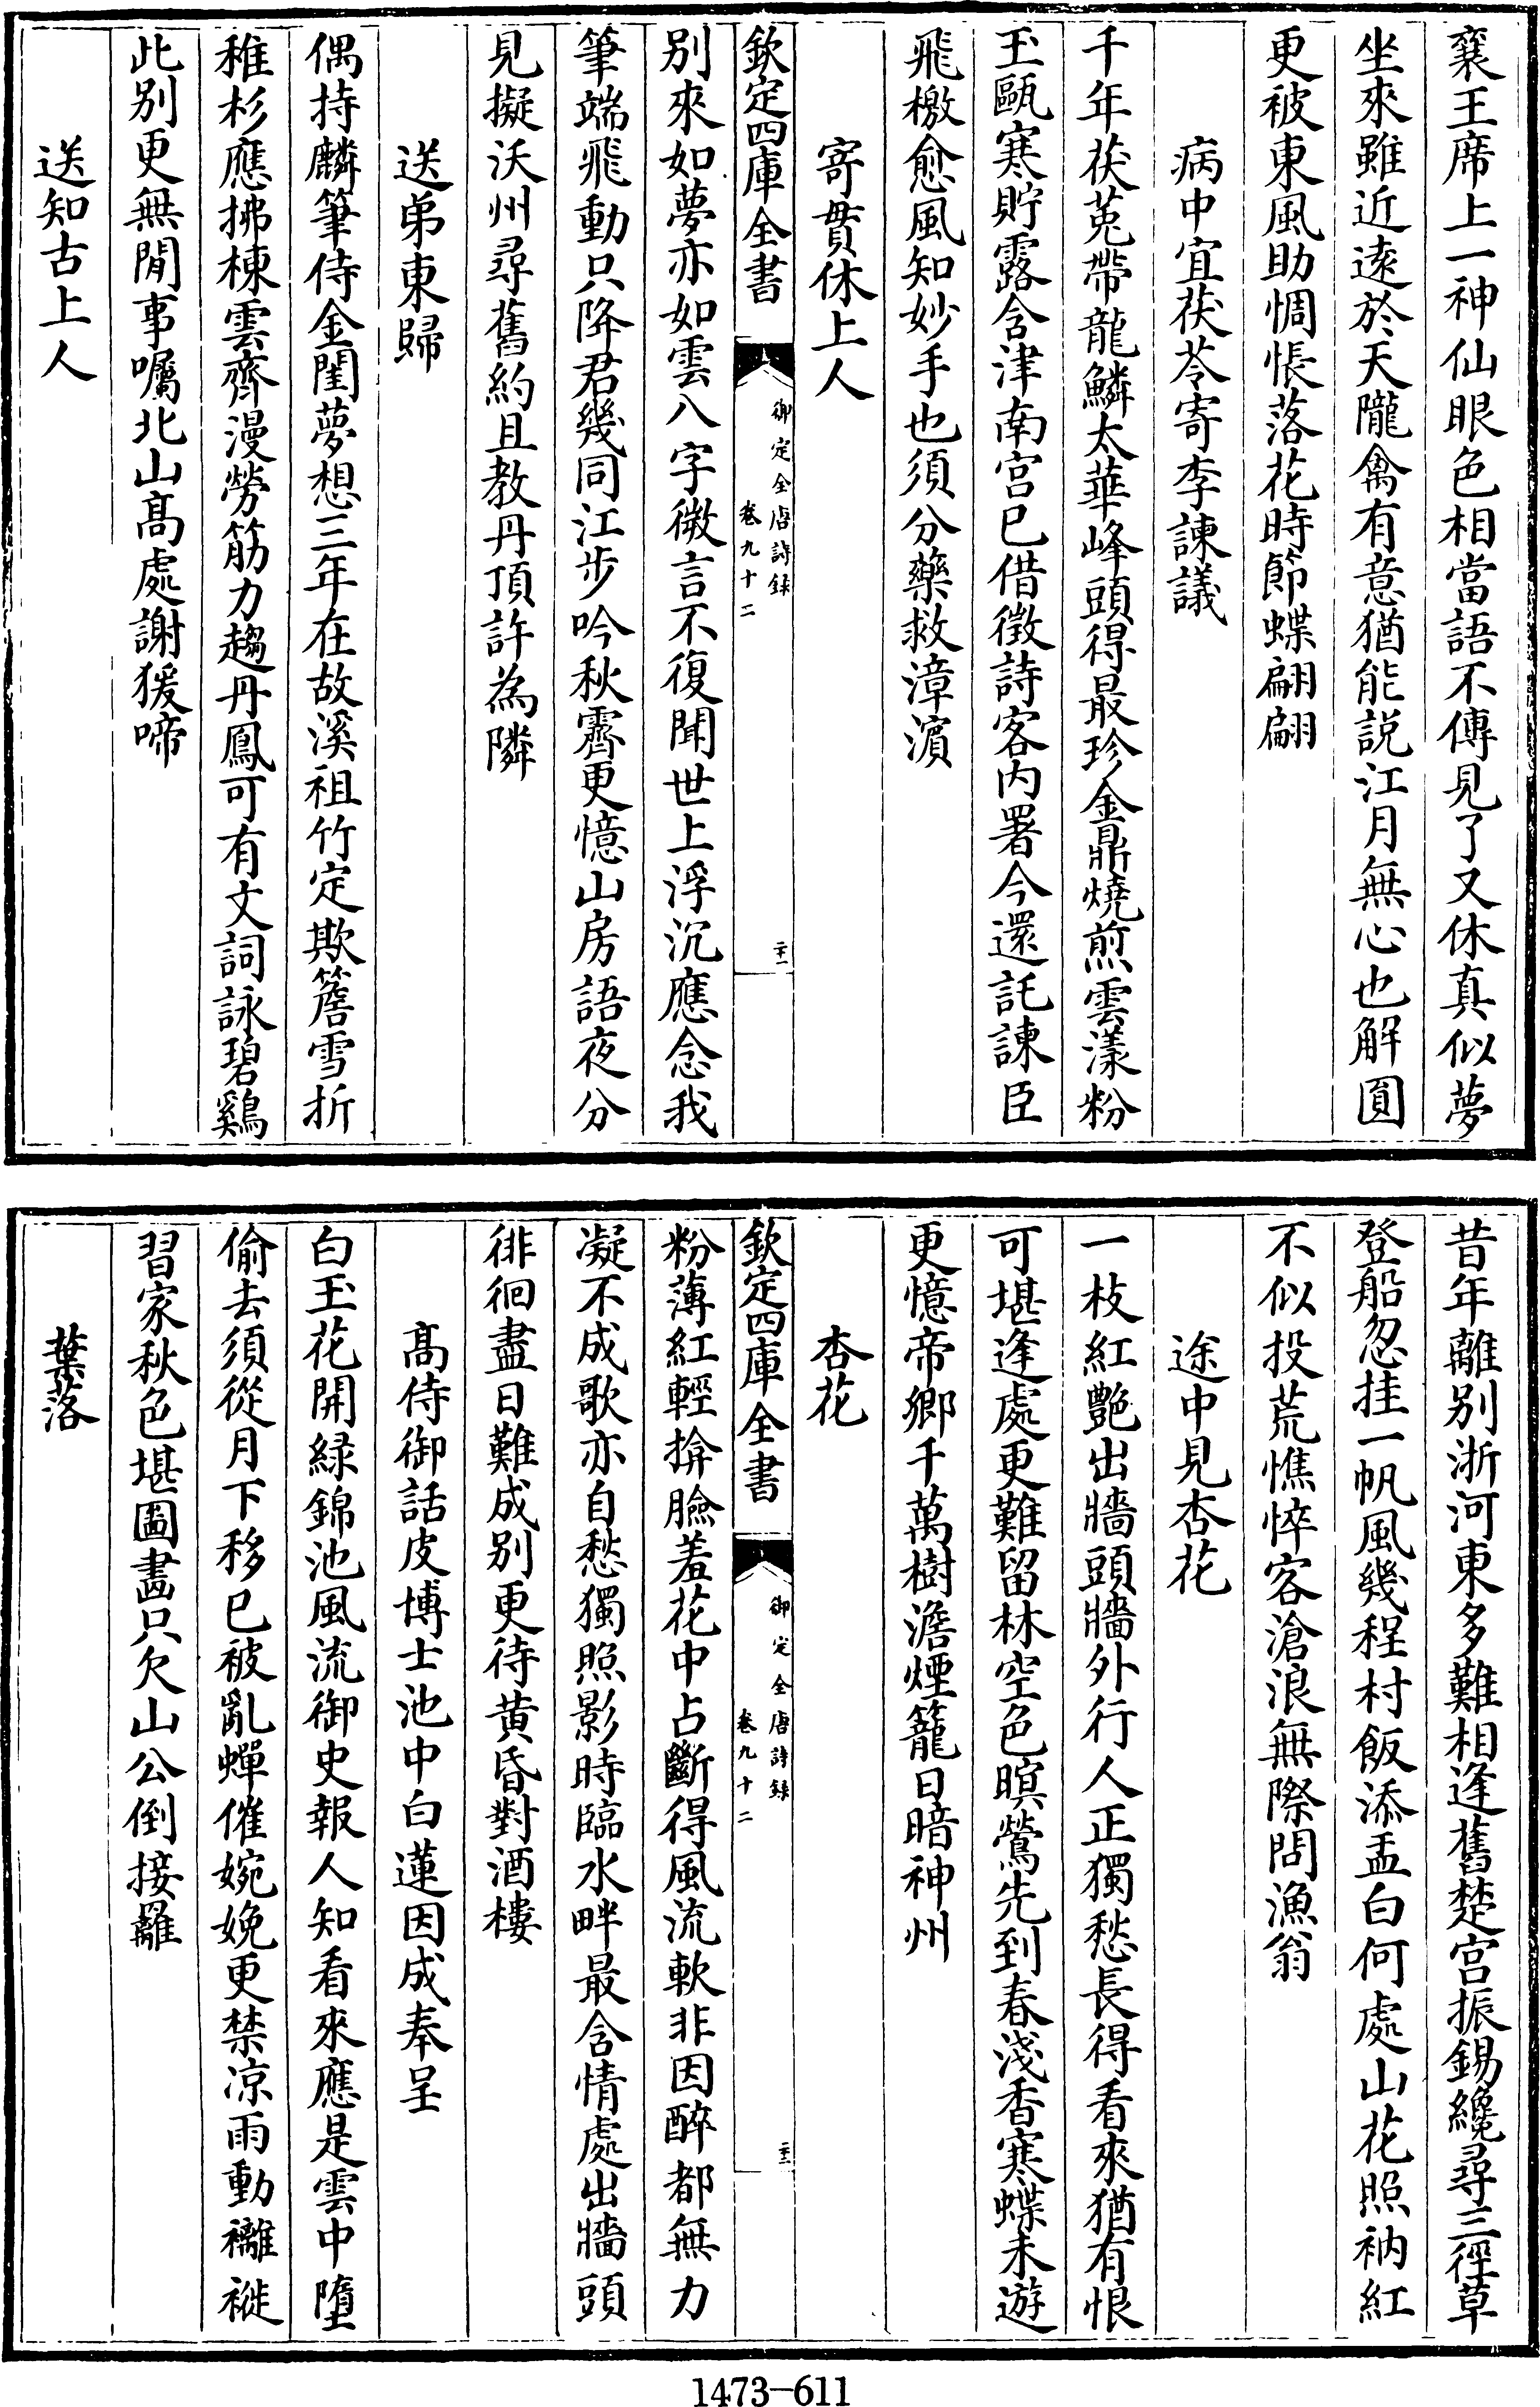 襄王席上一神仙眼色相當語不傳見了又休真似夢
坐來雖近逺於天隴禽有意猶能説江月無心也解圓
更被東風助惆悵落花時節蝶翩翩
病中宜茯苓寄李諫議
千年茯菟帶龍鱗太華峰頭得最珍金鼎燒煎雲漾粉
玉甌寒貯露含津南宫已借徴詩客内署今還託諫臣
飛檄愈風知妙手也須分藥救漳濵
寄貫休上人
欽定四庫全書
御定全唐詩録
卷九十二
二十一
别來如夢亦如雲八字微言不復聞世上浮沉應念我
筆端飛動只降君幾同江步吟秋霽更憶山房語夜分
見擬沃州尋舊約且教丹頂許為隣
送弟東歸
偶持麟筆侍金閨夢想三年在故溪祖竹定欺簷雪折
稚杉應拂棟雲齊漫勞筋力趨丹鳳可有文詞詠碧鷄
此别更無閒事囑北山髙處謝猨啼
送知古上人
昔年離别浙河東多難相逢舊楚宫振錫纔尋三徑草
登船忽挂一帆風幾程村飯添盂白何處山花照衲紅
不似投荒憔悴客滄浪無際問漁翁
途中見杏花
一枝紅艷出牆頭牆外行人正獨愁長得看來猶有恨
可堪逢處更難留林空色暝鶯先到春淺香寒蝶未遊
更憶帝鄉千萬樹澹煙籠日暗神州
杏花
欽定四庫全書
御定全唐詩録
卷九十二
二十二
粉薄紅輕揜臉羞花中占斷得風流軟非因醉都無力
凝不成歌亦自愁獨照影時臨水畔最含情處出牆頭
徘徊盡日難成别更待黄昏對酒樓
髙侍御話皮博士池中白蓮因成奉呈
白玉花開緑錦池風流御史報人知看來應是雲中墮
偷去須從月下移已被亂蟬催婉娩更禁凉雨動褵褷
習家秋色堪圖畵只欠山公倒接䍦
葉落
1473-611